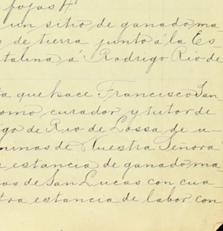 fojas 4
un sitio de ganado ma
de tierra junto á la Es
talina á Rodrigo Rio de
a que hace Francisco San
omo, curador y tutor de
go de Rio de Lossa de u
minas de Nuestra Señora
estancia de ganado ma
as de San Lucas con cua
tra estancia de labor con